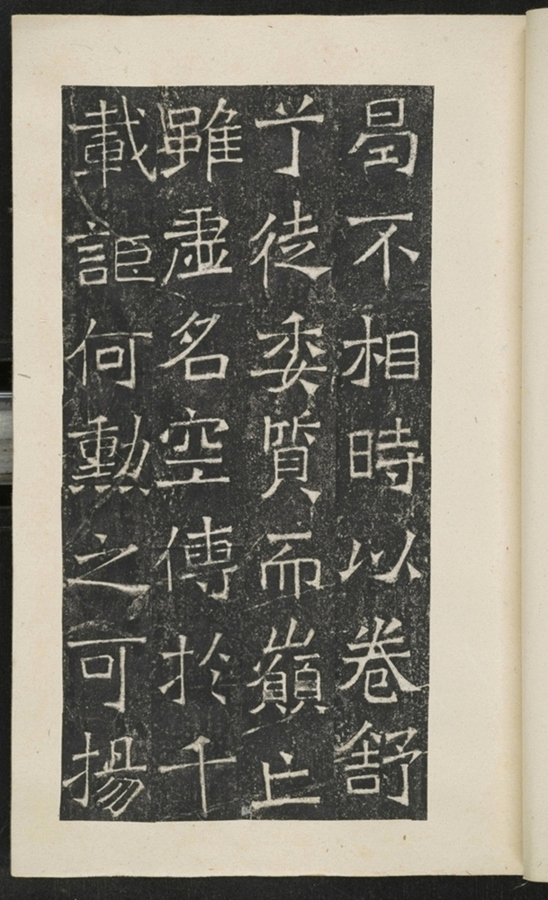 曷不相時以卷舒
亍徒委質而巔亡
雖虛名空傳於千
載詎何勳之可揚